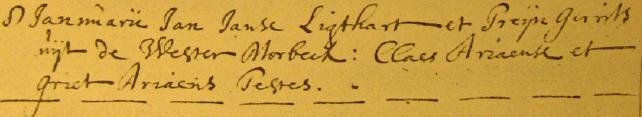 8 Januarii Jan Janse Ligthart et Trejn Gerrits
uijt de Wester Blokbeck : Claes Ariaense et
griet Ariaens Testes.